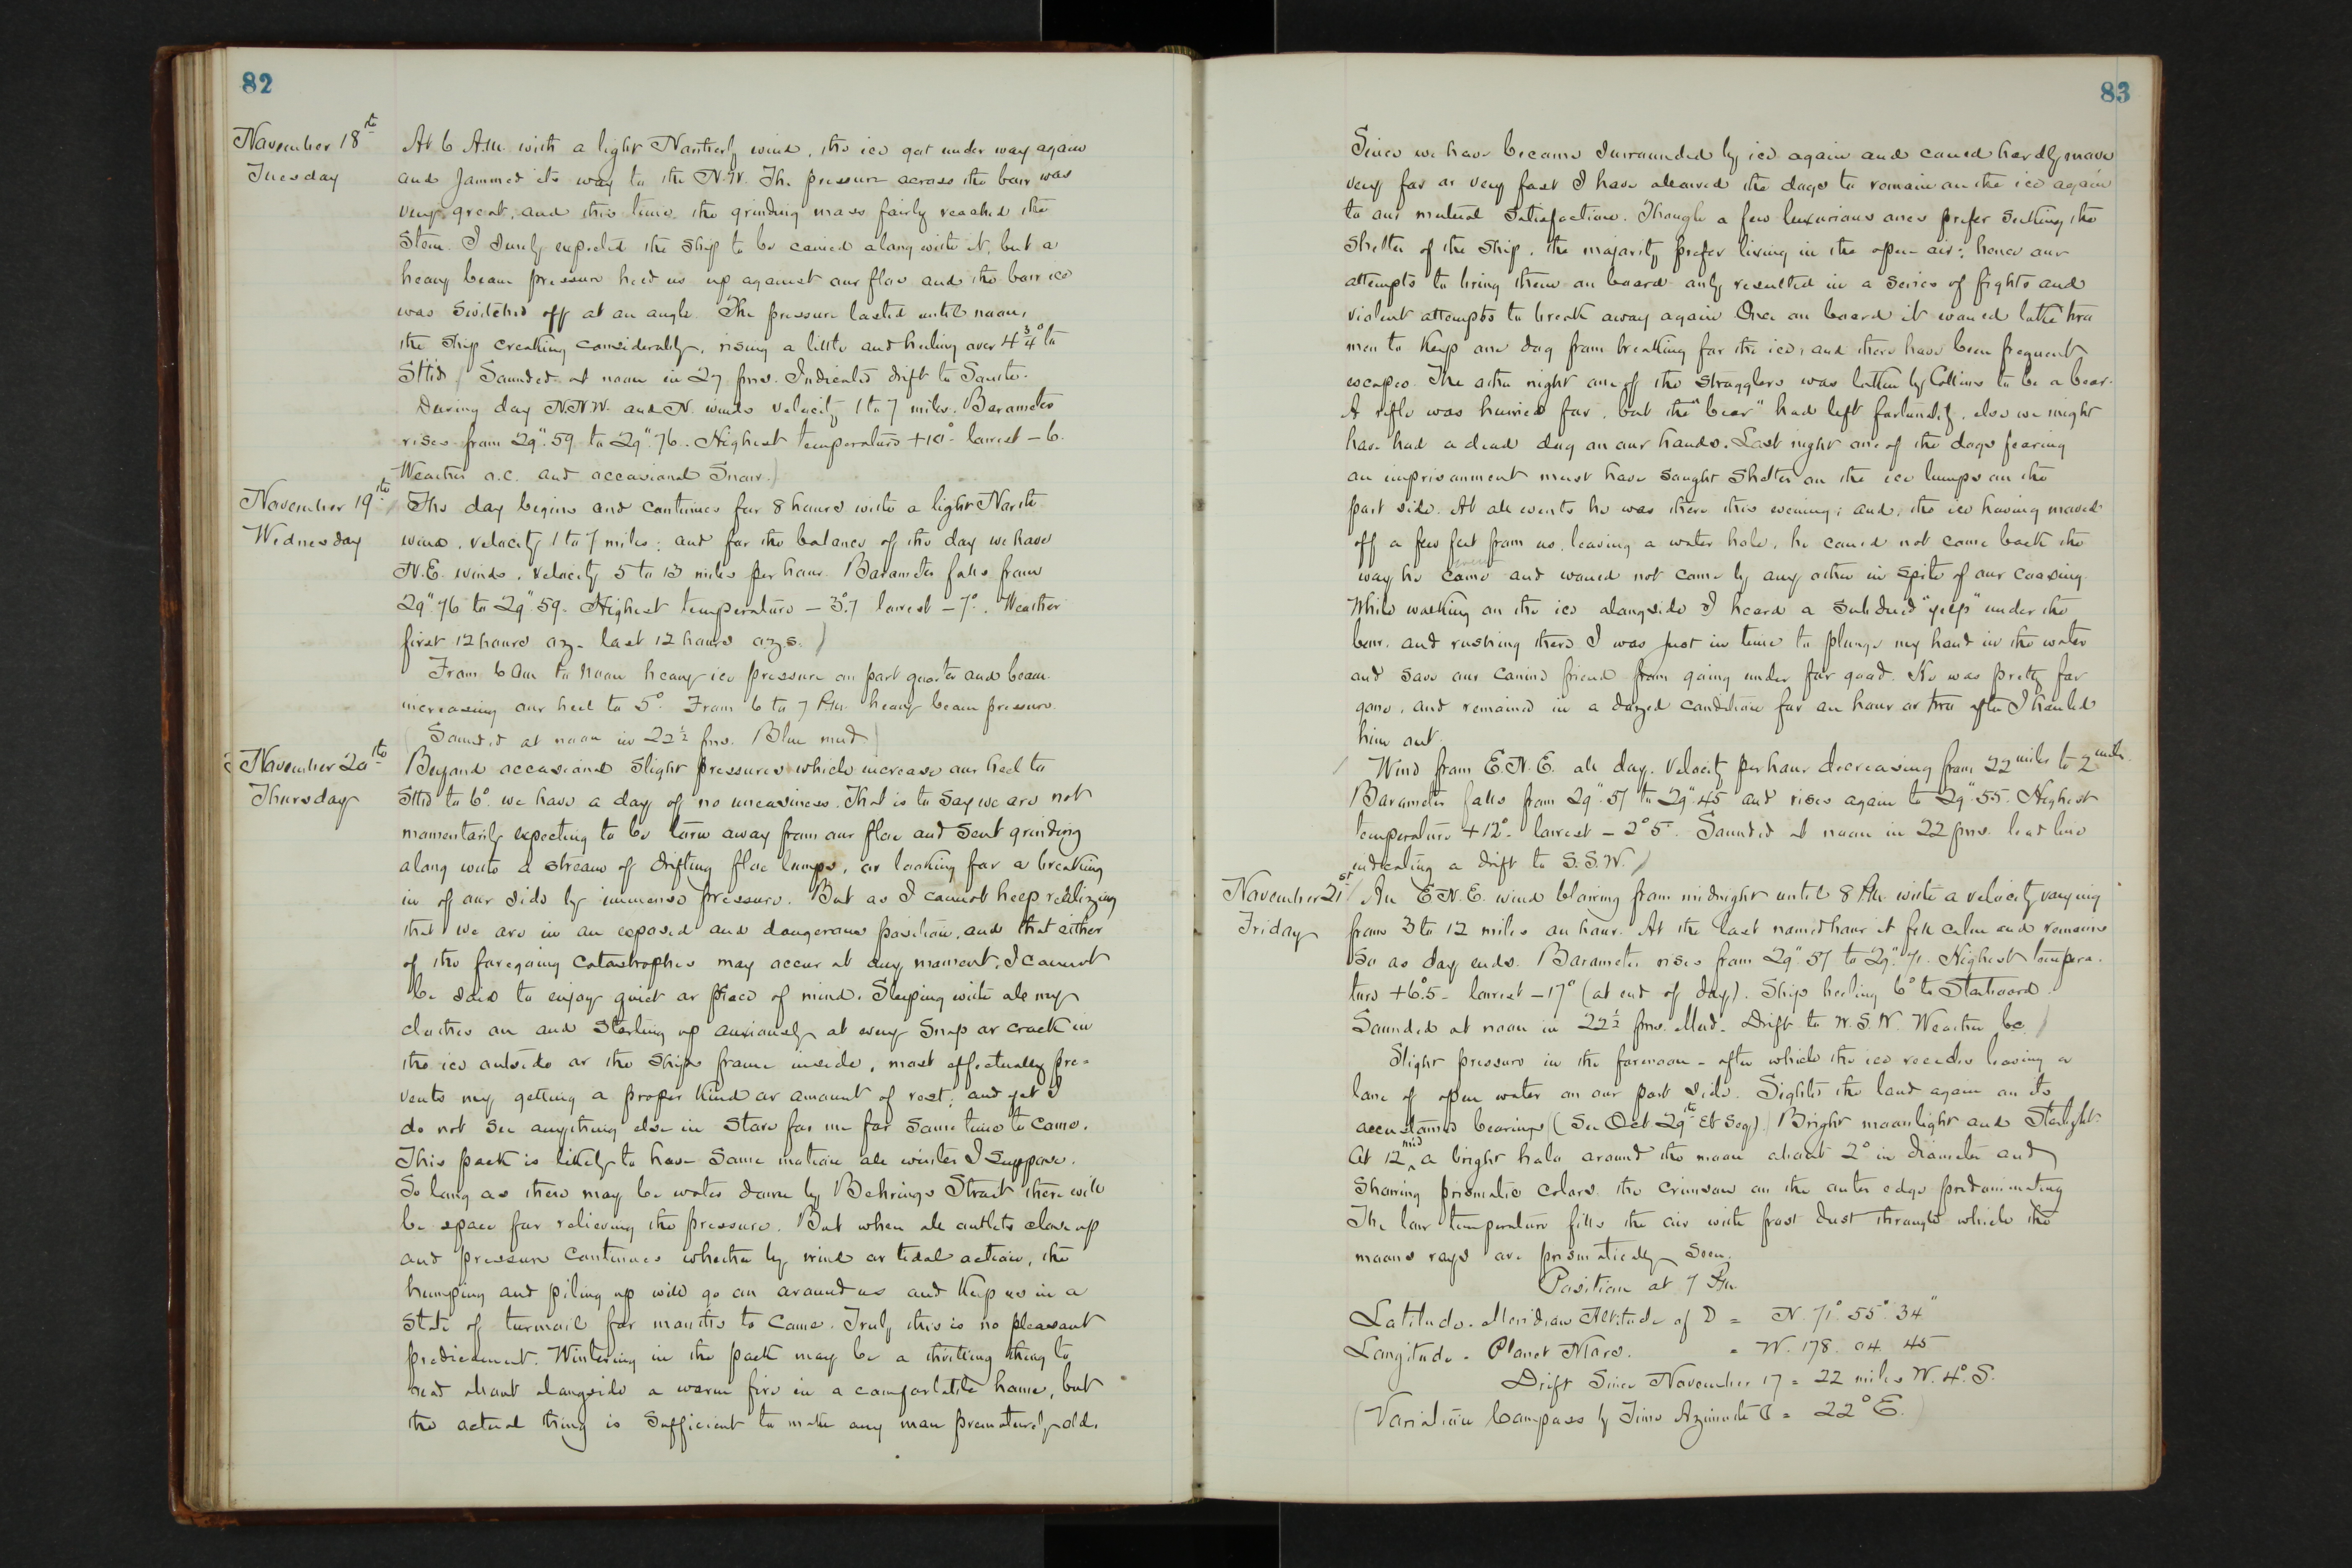 82
November 18th
Tuesday
At 6 A.M. with a light Northerly wind, the ice got under way again
and jammed its way to the N.W. The pressure across the bow was
very great, and this time the grinding mass fairly reached the
Stem. I surely expected the ship to be carried along with it, but a
heavy beam pressure held us up against our floe and the bow ice
was switched off at an angle. The pressure lasted until noon,
the ship creaking considerably, rising a little and heeling over 4 3/4° to
Stbd. Sounded at noon in 27 fms. Indicated drift to South.
During day N.N.W. and N. winds velocity 1 to 7 miles. Barometer
rises from 29".59 to 29".76. Highest temperature +10° lowest -6.
Weather o.c. and occasional Snow.)
November 19th
Wednesday
The day begins and continues for 8 hours with a light North
wind, velocity 1 to 7 miles; and for the balance of the day we have
N.E. winds, velocity 5 to 13 miles per hour. Barometer falls from
29".76 to 29".59. Highest temperature -3°.7 lowest -7°. Weather
first 12 hours oz. last 12 hours o.z.s.)
From 6 am to noon heavy ice pressure on port quarter and beam
increasing our heel to 5°. From 6 to 7 P.M. heavy beam pressure.
(Sounded at noon in 22 1/2 fms. Blue mud.)
November 20th
Thursday
Beyond occasional slight pressures which increase our heel to
Stbd to 6°. we have a day of no uneasiness. That is to say we are not
momentarily expecting to be torn away from our floe and sent grinding
along with a stream of drifting floe lumps, or looking for a breaking
in of our side by immense pressure. But as I cannot help realizing
that we are in an exposed and dangerous position, and that either
of the foregoing catastrophes may occur at any moment, I cannot
be said to enjoy quiet or peace of mind. Sleeping with all my
clothes on and starting up anxiously at every snap or crack in
the ice outside or the ships frame inside, most effectually pre-
vents my getting a proper kind or amount of rest; and yet I
do not see anything else in store for me for some time to come.
This pack is likely to have some motion all winter I suppose.
So long as there may be water down by Behrings Strait there will
be space for relieving the pressure. But when all outlets close up
and pressure continues whether by wind or tidal action, the
humping and piling up will go on around us and keep us in a
state of turmoil for months to come. Truly this is no pleasant
predicament. Wintering in the pack may be a thrilling thing to
read about alongside a warm fire in a comfortable home, but
the actual thing is sufficient to make any man prematurely old.
83
Since we have become surrounded by ice again and could hardly move
very far or very fast I have allowed the dogs to remain on the ice again
to our mutual satisfaction. Though a few luxurious ones prefer seeking the
shelter of the ship, the majority prefer living in the open air; hence our
attempts to bring them on board only resulted in a series of fights and
violent attempts to break away again Once on board it would take two
men to keep one dog from breaking for the ice, and there have been frequent
escapes. The other night one of the stragglers was taken by Collins to be a bear.
A rifle was hurried for, but the "bear" had left fortunately, else we might
have had a dead dog on our hands. Last night one of the dogs fearing
an imprisonment must have sought shelter on the ice lumps on the
port side. At all events he was there this evening; and, the ice having moved
off a few feet from us, leaving a water hole, he could not come back the
way he came and would not come by any other in spite of our coaxing.
While walking on the ice alongside I heard a subdued "yelp" under the
bow, and rushing there I was just in time to plunge my hand in the water
and save our canine friend from going under for good. He was pretty far
gone, and remained in a dazed condition for an hour or two after I hauled
him out.
Wind from E.N.E. all day. Velocity per hour decreasing from 22 miles to 2 miles.
Barometer falls from 29".57 to 29".45 and rises again to 29".55. Highest
temperature +12°. lowest -2°5. Sounded at noon in 22 fms. lead line
indicating a drift to S.S.W.)
November 21st
Friday
An E.N.E. wind blowing from midnight until 8 P.M. with a velocity varying
from 3 to 12 miles an hour. At the last named hour it fell calm and remains
so as day ends. Barometer rises from 29".57 to 29".71. Highest tempera-
ture +6°.5 - lowest -17° (at end of day). Ship heeling 6° to Starboard.
Sounded at noon in 22 1/2 fms. Mud. Drift to W.S.W. Weather bc.)
Slight pressure in the forenoon - after which the ice recedes leaving a
lane of open water on our port side. Sighted the land again on its
accustomed bearings (See Oct 29th et Seq). Bright moonlight and Starlight.
At 12 mid a bright halo around the moon about 2° in diameter and
showing prismatic colors, the crimson on the outer edge predominating
The low temperature fills the air with frost dust through which the
moons rays are prismatically seen.
Position at 7 P.M.
Latitude. Meridian Altitude of ☽ = N. 71° 55' 34"
Longitude. Planet Mars. = W. 178. 04. 45
Drift Since November 17 = 22 miles W. 4° S.
(Variation Compass by Time Azimuth ☾ = 22° E.)